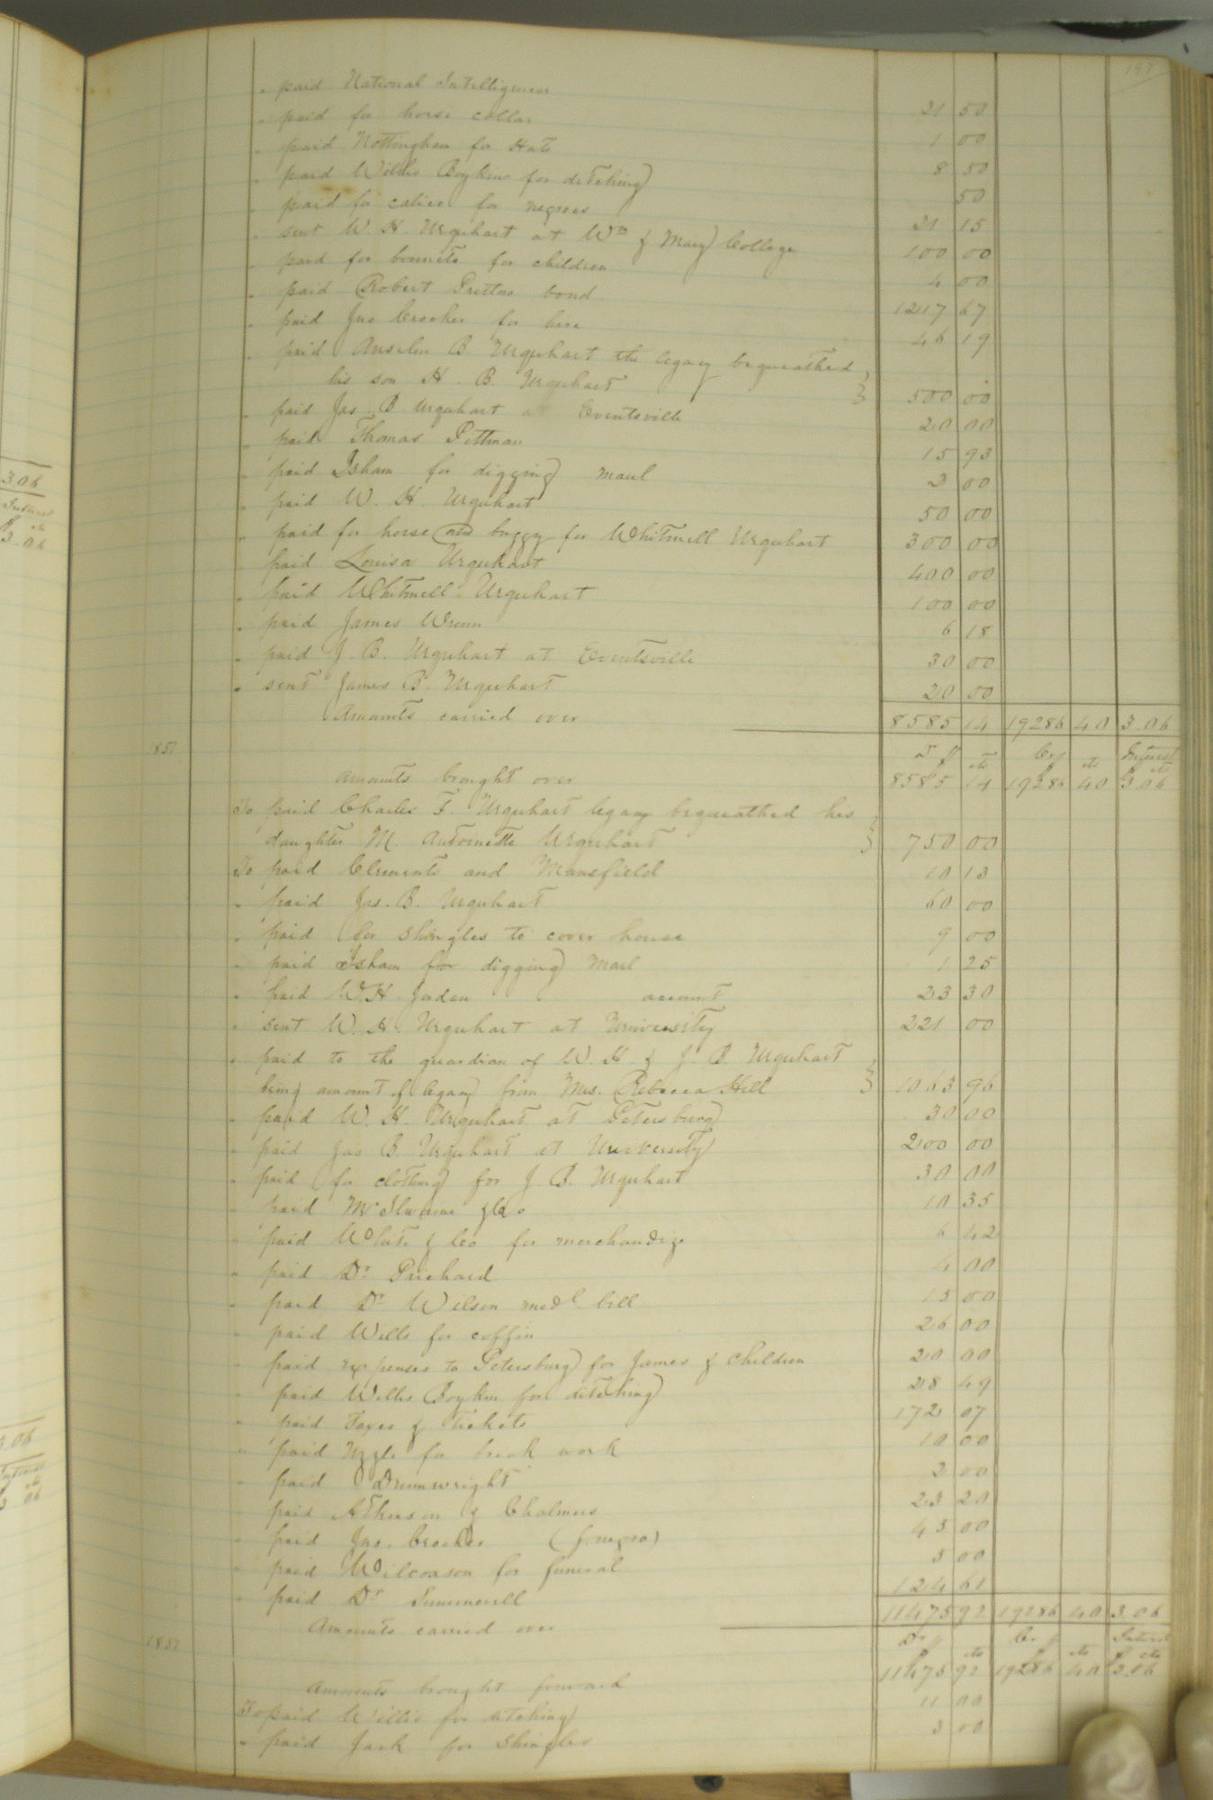 197
" paid National Intelligencer 21 50
" paid for horse collar 1 00
" paid Nottingham for Hats 8 50
" paid Willis Boykins for ditching 50
" paid for calico for negroes 21 15
" sent W. H. Urquhart at Wm & Mary College 100 00
" paid for bonnets for children 4 00
" paid Robert Britton bond 1217 67
" paid Jno Crocker for hire 46 19
" paid Anselm B Urquhart the legacy bequeathed
his son A. B. Urquhart 500 00
" paid Jas. B Urquhart at Eventsville 20 00
" paid Thomas Pittman 15 93
" paid Isham for digging marl 2 00
" paid W. H. Urquhart 50 00
" paid for horse and buggy for Whitmell Urquhart 300 00
" paid Louisa Urquhart 400 00
" paid Whitmell Urquhart 100 00
" paid James Wrenn 6 18
" paid J. B. Urquhart at Eventsville 30 00
" sent James B. Urquhart 20 00
Amounts carried over 8585 14 19286 40 3.06
851 Dr $ cts Cr $ cts Interest $ cts
Amounts brought over 8585 14 19286 40 3.06
To paid Charles F. Urquhart legacy bequeathed his
daughter M. Antoinette Urquhart 750 00
To paid Clements and Mansfield 10 13
" paid Jas. B. Urquhart 60 00
" paid for shingles to cover house 9 00
" paid Isham for digging Marl 1 25
" paid W. H. Judea account 23 30
" sent W. H. Urquhart at University 221 00
" paid to the guardian of W. H. & J. B Urquhart
being amount of legacy from Mrs. Rebecca Hill 1063 96
" paid W. H. Urquhart at Petersburg 30 00
" paid Jas B. Urquhart at University 200 00
" paid for clothing for J. B. Urquhart 30 00
" paid McIlwaine & Co 10 35
" paid White & Co for merchandize 6 42
" paid Dr Prichard 4 00
" paid Dr Wilson medl bill 15 00
" paid Wills for coffin 26 00
" paid expenses to Petersburg for James & children 20 00
" paid Willis Boykin for ditching 28 49
" paid Taxes & Tickets 172 07
" paid Uzzle for brick work 10 00
" paid Drumwright 2 00
" paid Atkinson & Chalmers 23 20
" paid Jno. Crocker (for negro) 45 00
" paid Wilcoxson for funeral 5 00
" paid Dr Summerell 124 61
Amounts carried over 11475 92 19286 40 3.06
1852 Dr $ cts Cr $ cts Interest $ cts
Amounts brought forward 11475 92 19286 40 3.06
To paid Willis for ditching 11 00
" paid Jack for Shingles 3 00
3.06
Interest
$ cts
3.06
3.06
Interest
$ cts
3 06